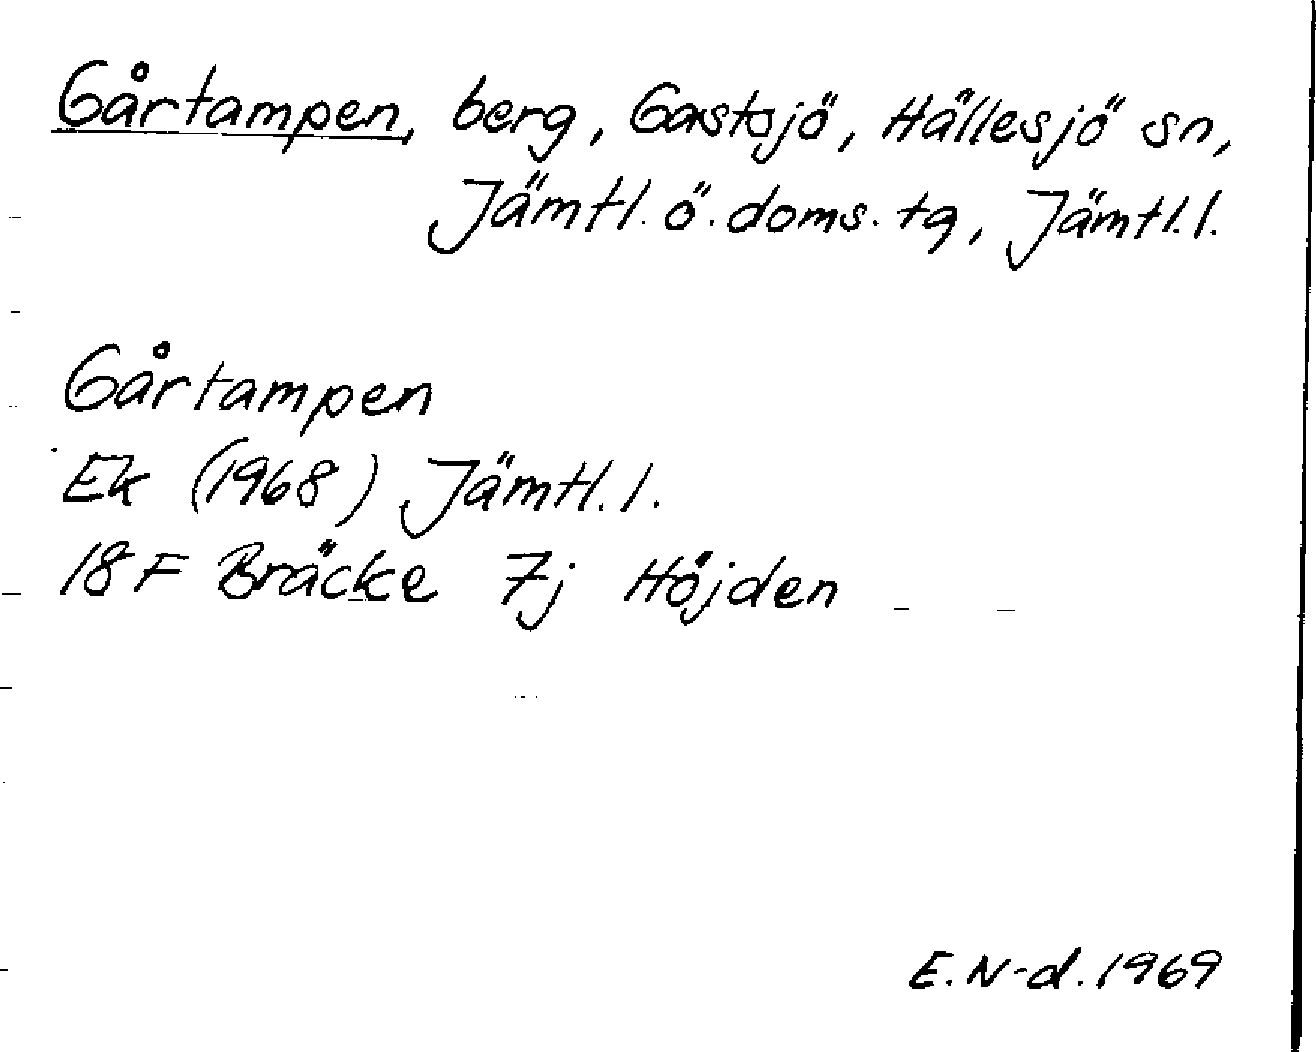 Gårtampen, berg, Gastsjö, Hällesjö sn,
Jämtl. ö. doms. tg, Jämtl. l.
Gårtampen
Ek (1968) Jämtl. l.
18 F Bräcke 7j Höjden
E. N-d. 1969